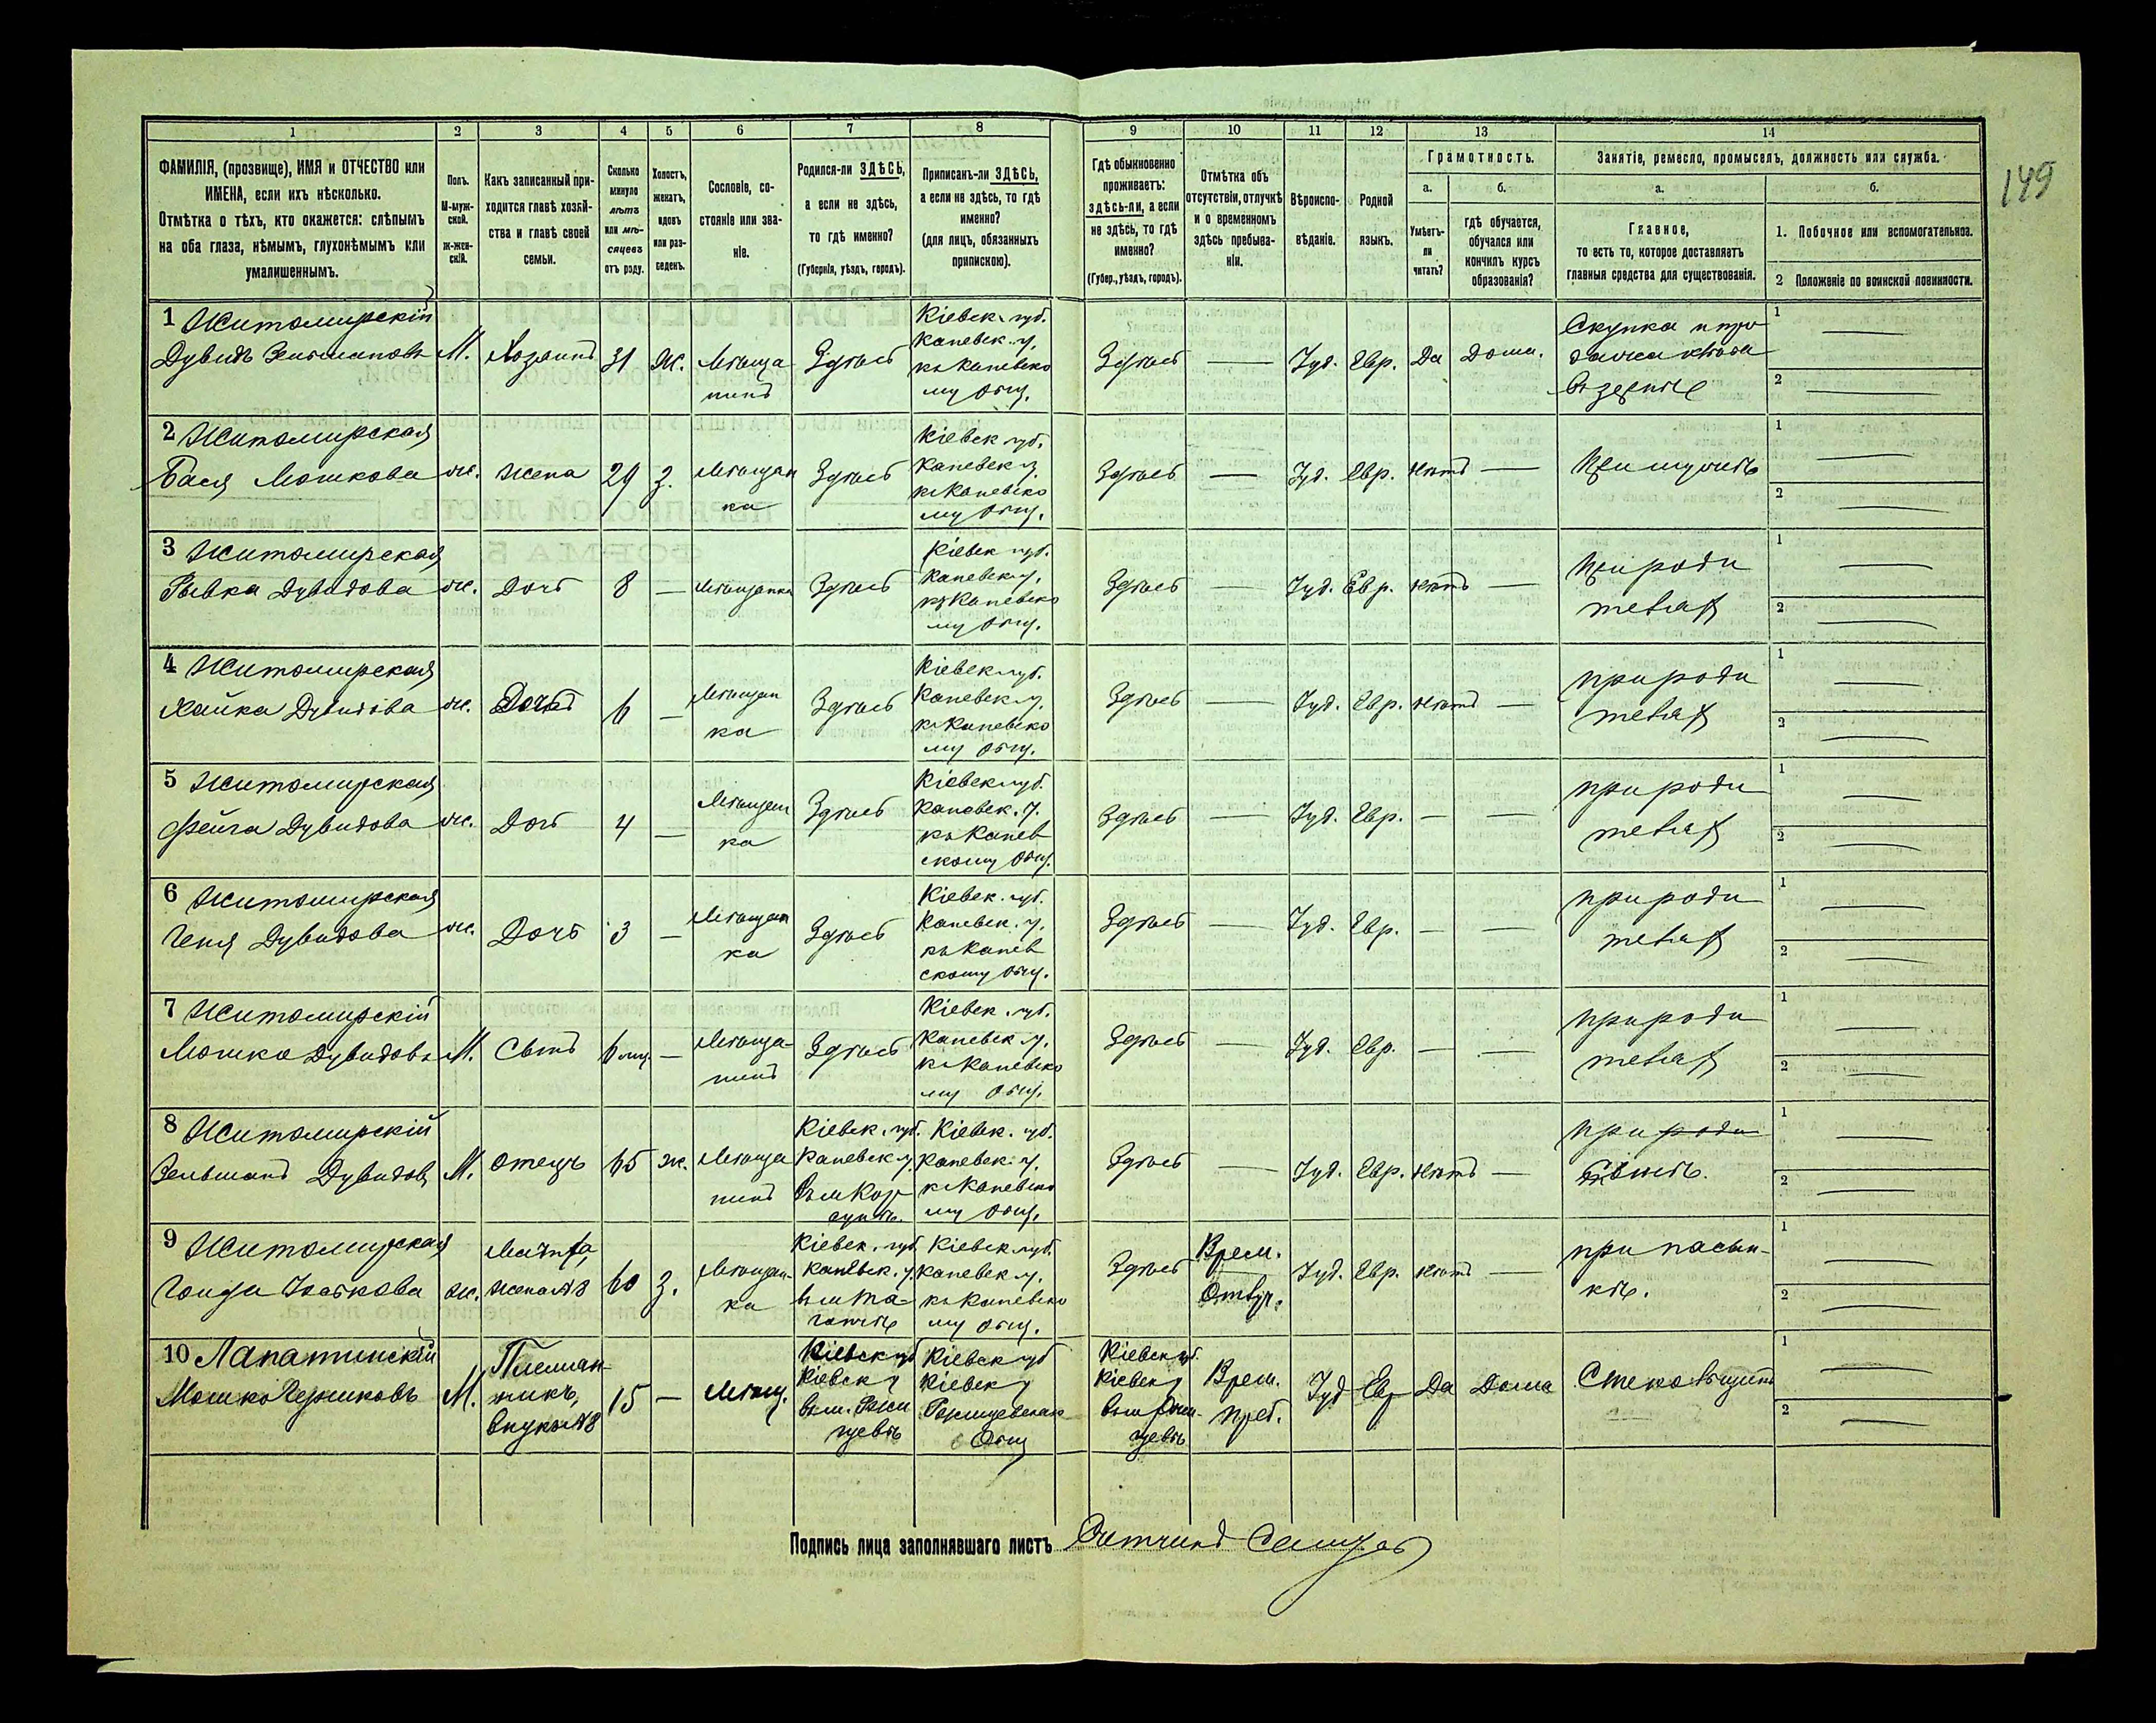 149
1 2 3 4 5 6 7 8 9 10 11 12 13 14
ФАМИЛІЯ, (прозвище), ИМЯ и ОТЧЕСТВО или
ИМЕНА, если ихъ нѣсколько.
Отмѣтка о тѣхъ, кто окажется: слѣпымъ
на оба глаза, нѣмымъ, глухонѣмымъ или
умалишеннымъ.
Полъ.
М-муж-
ской.
ж-жен-
скій.
Какъ записанный при-
ходится главѣ хозяй-
ства и главѣ своей
семьи.
Сколько
минуло
лѣтъ
или мѣ-
сяцевъ
отъ роду.
Холостъ,
женатъ,
вдовъ
или раз-
веденъ.
Сословіе, со-
стояніе или зва-
ніе.
Родился-ли ЗДѢСЬ,
а если не здѣсь,
то гдѣ именно?
(Губернія, уѣздъ, городъ).
Приписанъ-ли ЗДѢСЬ,
а если не здѣсь, то гдѣ
именно?
(для лицъ, обязанныхъ
припискою).
Гдѣ обыкновенно
проживаетъ:
здѣсь-ли, а если
не здѣсь, то гдѣ
именно?
(Губер., уѣздъ, городъ).
Отмѣтка объ
отсутствіи, отлучкѣ
и о временномъ
здѣсь пребыва-
ніи.
Вѣроиспо-
вѣданіе.
Родной
языкъ.
Грамотность.
а.
Умѣетъ-
ли
читать?
б.
гдѣ обучается,
обучался или
кончилъ курсъ
образованія?
Занятіе, ремесло, промыселъ, должность или служба.
а.
Главное,
то есть то, которое доставляетъ
главныя средства для существованія.
б.
1. Побочное или вспомогательное.
2 Положеніе по воинской повинности.
1 Житомирскій
Дувидъ Зельмановъ
М.
Хозяинъ
31
Ж.
Мѣща
нинъ
Здѣсь
Кіевск. губ.
Каневск. у.
къ Каневско
му общ.
Здѣсь
—
Іуд.
Евр.
Да
Дома.
Скупка и про
дажа хлѣба
въ зернѣ
1 —
2 —
2 Житомирская
Бася Мошкова
ж.
Жена
29
З.
Мѣщан
ка
Здѣсь
Кіевск губ.
Каневск у.
къ Каневско
му общ.
Здѣсь
—
Іуд.
Евр.
нѣтъ
—
При мужѣ
1 —
2 —
3 Житомирская
Рывка Дувидова
ж.
Дочь
8
—
Мѣщанка
Здѣсь
Кіевск губ.
Каневск у.
къ Каневско
му общ.
Здѣсь
—
Іуд.
Евр.
нѣтъ
—
При роди
теляхъ
1 —
2 —
4 Житомирская
Хайка Дувидова
ж.
Дочь
6
—
Мѣщан
ка
Здѣсь
Кіевск губ.
Каневск у.
къ Каневско
му общ.
Здѣсь
—
Іуд.
Евр.
нѣтъ
—
при роди
теляхъ
1 —
2 —
5 Житомирская
Фейга Дувидова
ж.
Дочь
4
—
Мѣщан
ка
Здѣсь
Кіевск губ.
Каневск. у.
къ Канев
скому общ.
Здѣсь
—
Іуд.
Евр.
—
—
при роди
теляхъ
1 —
2 —
6 Житомирская
Геня Дувидова
ж.
Дочь
3
—
Мѣщан
ка
Здѣсь
Кіевск. губ.
Каневск. у.
къ Канев
скому общ.
Здѣсь
—
Іуд.
Евр.
—
—
при роди
теляхъ
1 —
2 —
7 Житомирскій
Мошко Дувидовъ
М.
Сынъ
6 мц.
—
Мѣща-
нинъ
Здѣсь
Кіевск. губ.
Каневск у.
къ Каневско
му общ.
Здѣсь
—
Іуд.
Евр.
—
—
при роди
теляхъ
1 —
2 —
8 Житомирскій
Зельманъ Дувидов
М.
отецъ
65
ж.
Мѣща
нинъ
Кіевск. губ.
Каневск у.
въ м Кор
сунѣ.
Кіевск. губ.
Каневск. у.
къ Каневско
му общ.
Здѣсь
—
Іуд.
Евр.
нѣтъ
—
при роди
сынѣ.
1 —
2 —
9 Житомирская
Ж.
Мачиха,
жена №8
60
З.
Мѣщан-
ка
Кіевск. губ
Каневск. у.
Кіевск губ.
Каневск у.
къ Каневско
му общ.
Здѣсь
Врем.
Отлуч.
Іуд.
Евр.
нѣтъ
—
при пасын-
кѣ.
1 —
2 —
10 Лапатинскій
Мошко Гершковъ
М.
Племян-
никъ,
внукъ №8
15
—
Мѣщ.
Кіевск губ
Кіевск у
въ м. Ржи
щевѣ
Кіевск губ
Кіевск у
Ржищевское
Общ
Кіевск губ.
Кіевск у
въ м Ржи-
щевѣ
Врем.
преб.
Іуд
Евр
Да
Дома
Стекольщикъ
1 —
2 —
Подпись лица заполнявшаго листъ